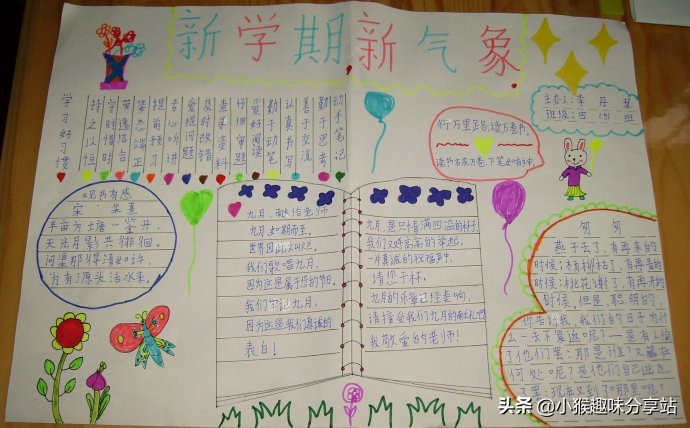 新学期新气象
主办:李丹
班级:四
学习好习惯
持之以恒
守时惜时
姿态端正
课前预习
专心听讲
爱提问题
及时改错
查寻资料
仔细审题
爱好阅读
勤于动笔
认真书写
善于交流
勤于思考
动手笔记
行万里路,读万卷书。
读书破万卷,下笔如有神。
观书有感
宋·朱熹
半亩方塘一鉴开,
天光云影共徘徊。
问渠那得清如许,
为有源头活水来。
九月,献给老师
九月,如期而至。
世界因此
我们歌唱九月,
因为这是属于您的节日。
我们牢记九月,
因为这是我们真诚的
表白!
九月是只情满四溢的杯子,
我们双手高高的举起,
一片真诚的祝福声中,
请你干杯。
九月的乐章已经奏响,
请接受我们九月的献礼吧
我敬爱的老师!
匆匆
燕子去了,有再来的
时候;杨柳枯了,有再青的
时候;桃花谢了,有再开的
时候。但是,聪明的,
你告诉我,我们的日子为什
么一去不复返呢?——是有人偷
了他们罢:那是谁?又藏在
何处呢?是他们自己逃走
了罢:现在又到了哪里呢?
头条 @小猴趣味分享站